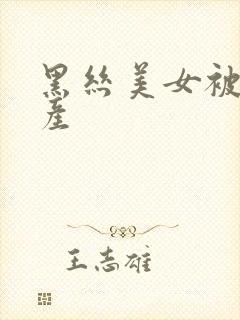 黑絲美女被
産
王志雄